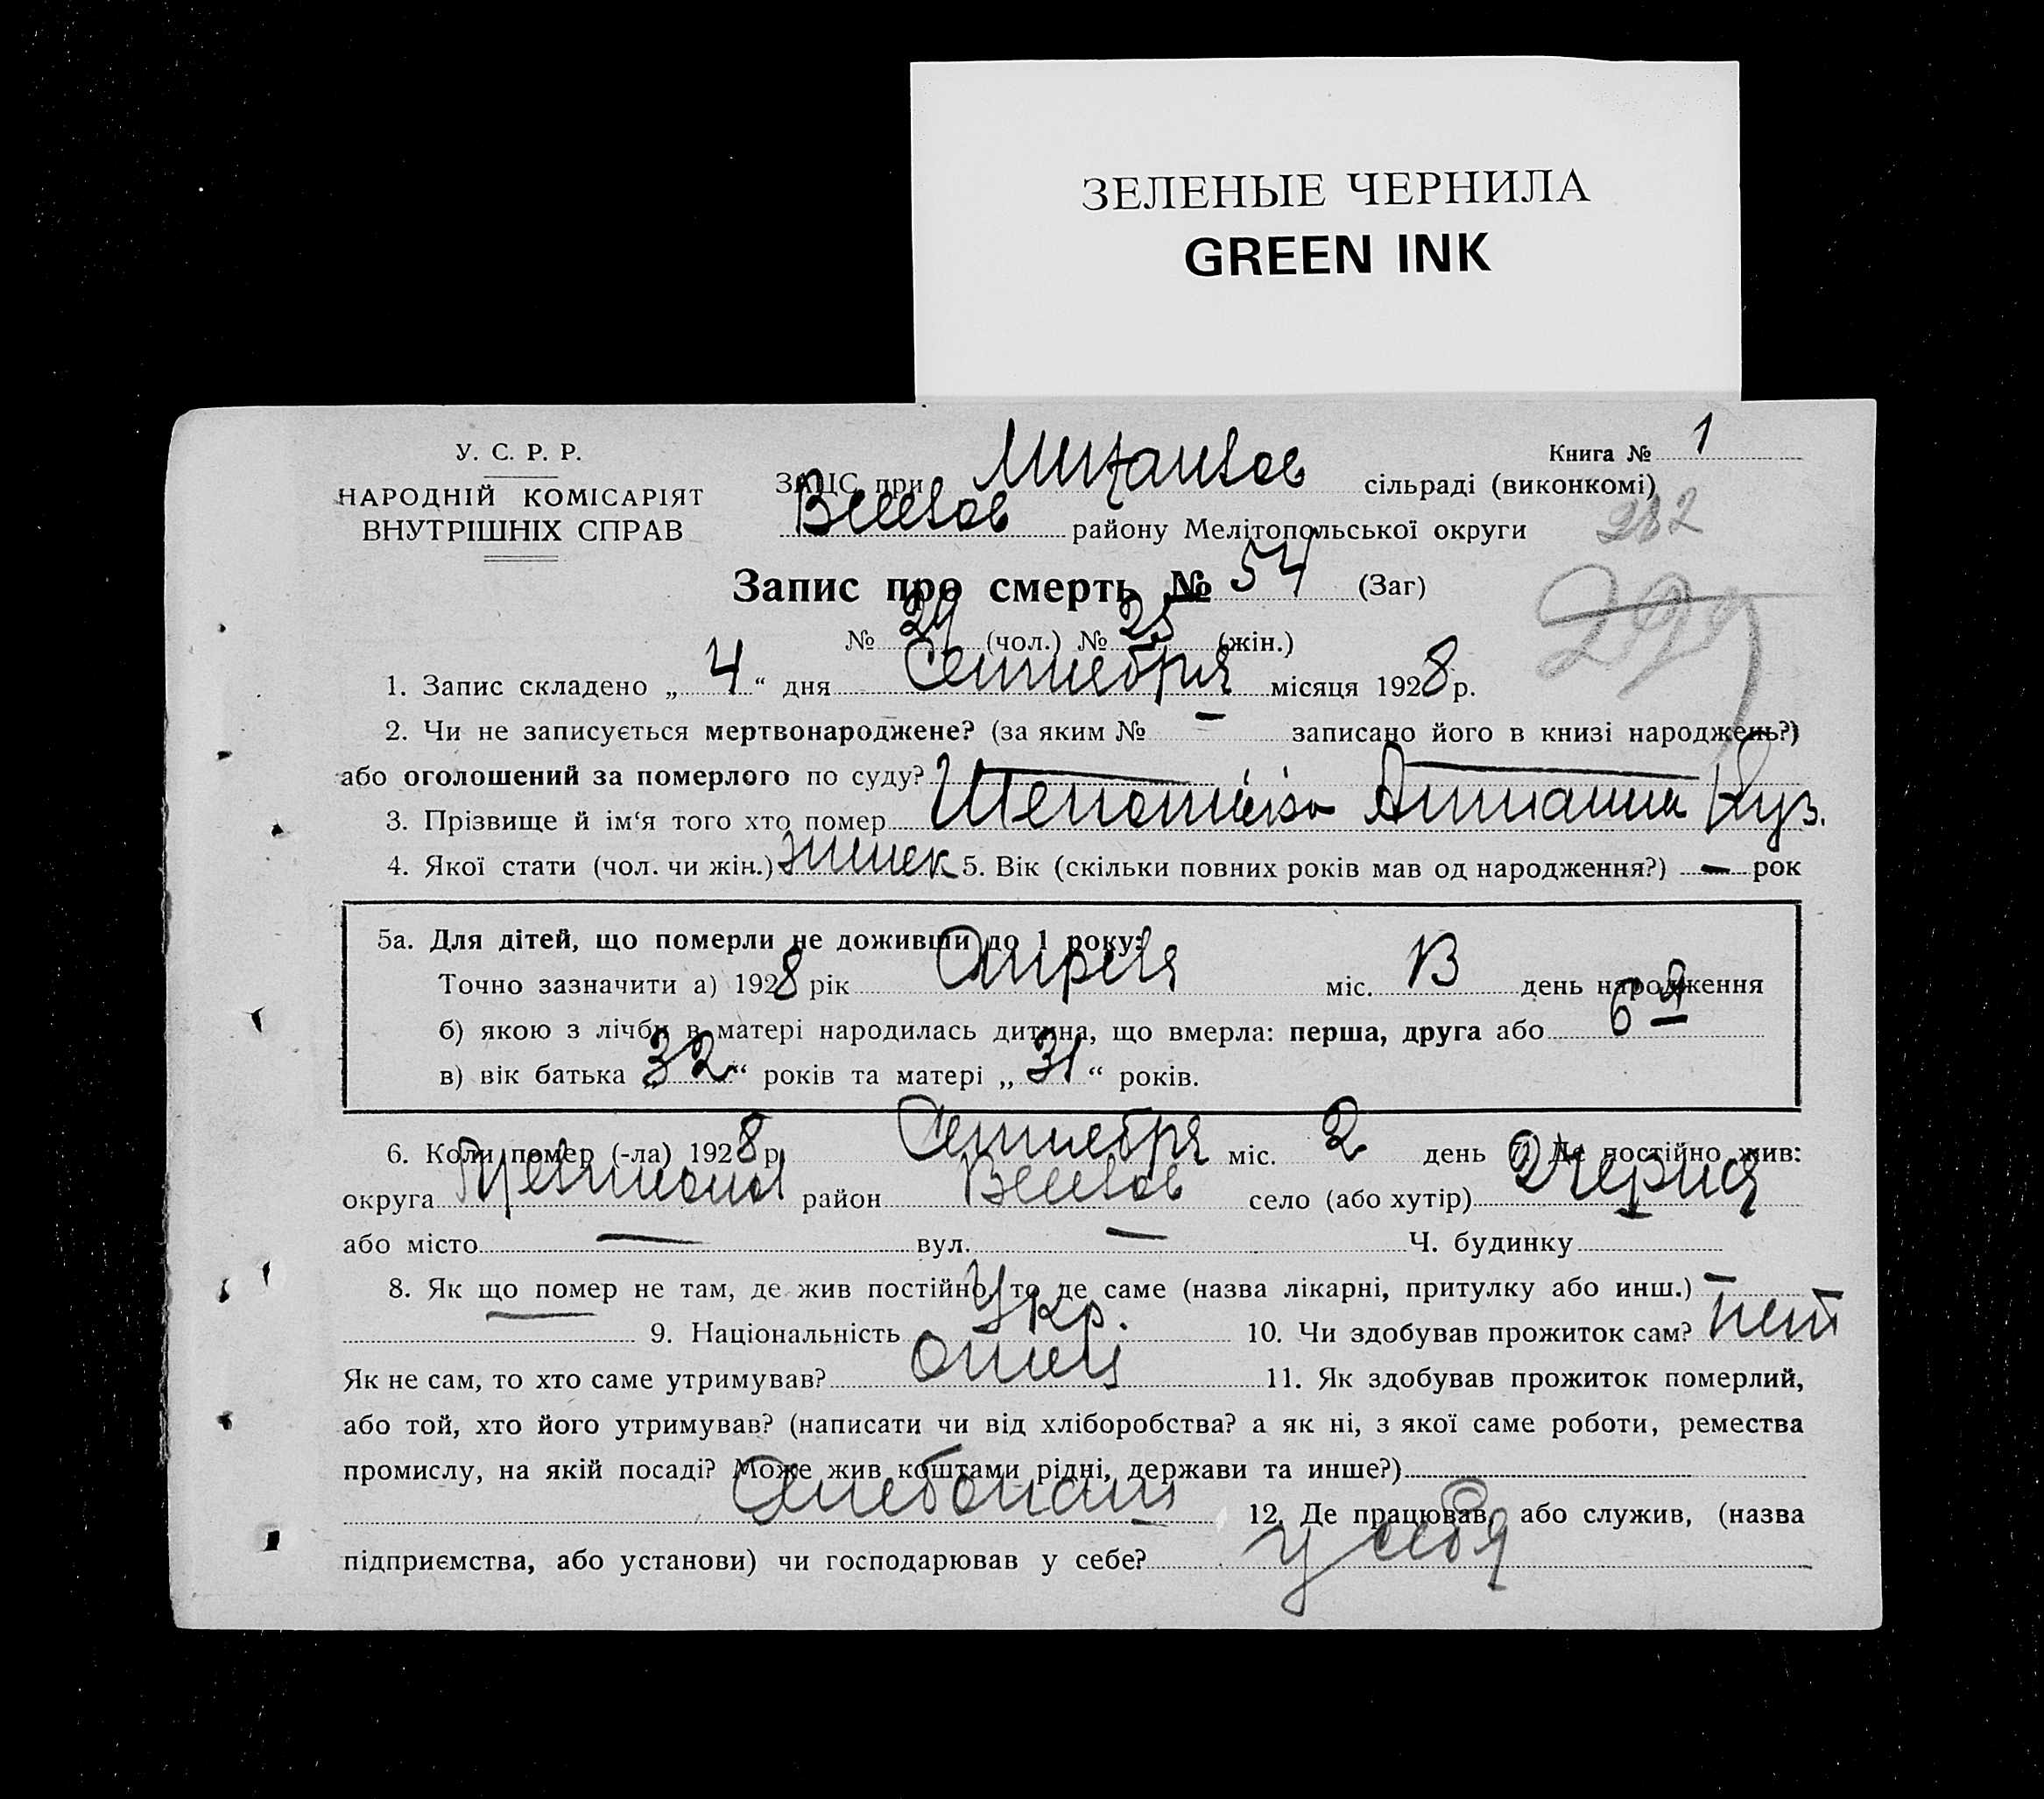 ЗЕЛЕНЫЕ ЧЕРНИЛА
GREEN INK
У. С. Р. Р.
НАРОДНІЙ КОМІСАРІЯТ
ВНУТРІШНІХ СПРАВ
Книга № 1
ЗАЦС при сільраді (виконкомі)
району Мелітопольської округи
282
299
Запис про смерть № 54 (Заг)
№ 29 (чол.) № 25 (жін.)
1. Запис складено „ 4 “ дня Сентября місяця 1928 р.
2. Чи не записується мертвонароджене? (за яким № – записано його в книзі народжень?)
або оголошений за померлого по суду? —
3. Прізвище й ім‘я того хто помер Куз.
4. Якої стати (чол. чи жін.) женск 5. Вік (скільки повних років мав од народження?) – рок
5а. Для дітей, що померли не доживши до 1 року:
Точно зазначити а) 1928 рік Апреля міс. 13 день народження
б) якою з лічби в матері народилась дитина, що вмерла: перша, друга або 6-я
в) вік батька „ 32 “ років та матері „ 31 “ років.
6. Коли помер (-ла) 1928 р. Сентября міс. 2 день 7. Де постійно жив:
округа район село (або хутір)
або місто — вул. — Ч. будинку
8. Як що помер не там, де жив постійно, то де саме (назва лікарні, притулку або инш.) –
— 9. Національність Укр. 10. Чи здобував прожиток сам? нет
Як не сам, то хто саме утримував? отец 11. Як здобував прожиток померлий,
або той, хто його утримував? (написати чи від хліборобства? а як ні, з якої саме роботи, ремества
промислу, на якій посаді? Може жив коштами рідні, держави та инше?)
12. Де працював, або служив, (назва
підприємства, або установи) чи господарював у себе? у себя